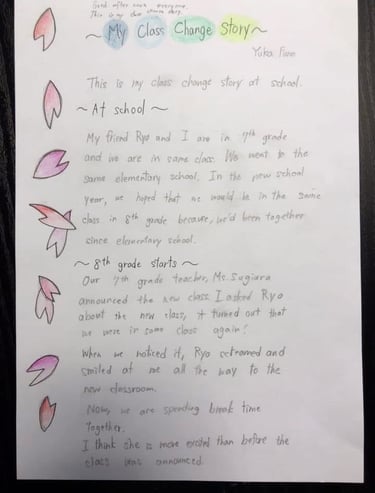 Good after noon everyone.
This is my class change story.
~ My Class Change Story ~
Yuka
This is my class change story at school.
~ At school ~
My friend Ryo and I are in 7th grade
and we are in same class. We went to the
same elementary school. In the new school
year, we hoped that we would be in the same
class in 8th grade because, we'd been together
since elementary school.
~ 8th grade starts ~
Our 7th grade teacher, Ms. Sugiura
announced the new class. I asked Ryo
about the new class, it turned out that
we were in same class again!
When we noticed it, Ryo screamed and
smiled at me all the way to the
new classroom.
Now, we are spending break time
together.
I think she is more excited than before the
class was announced.